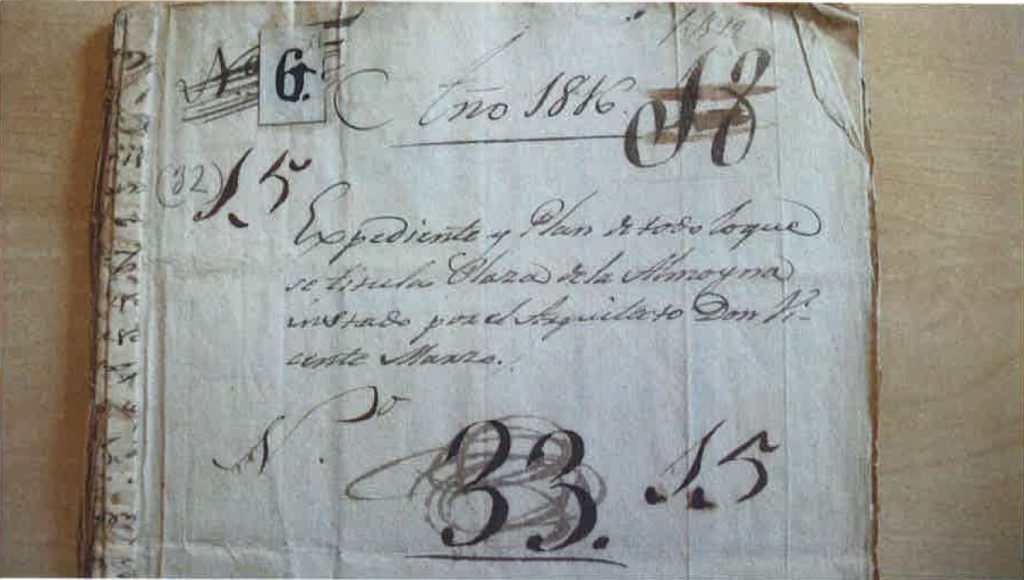 G.
Año 1816.
18
(32) 15
Expediente y Plan de todo loque
se titula Plaza de la Almoyna
instado por el Arquitecto Don Vi-
cente Marzo.
N.º
33. 15